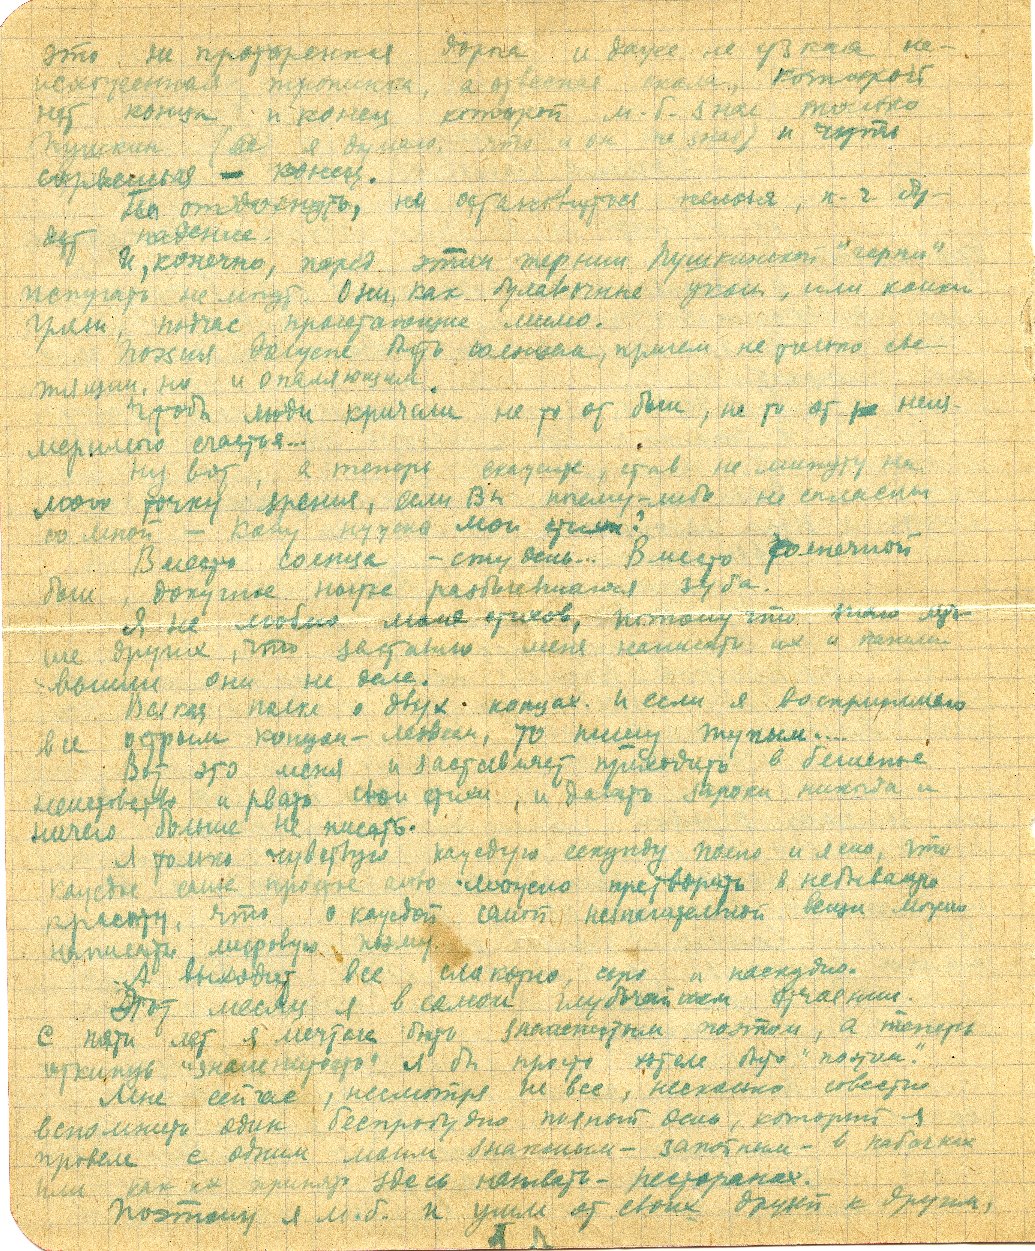 это не проторенная дорога и даже не узкая не-
исхоженная тропинка, а отвесная скала, которой
нет конца и конец которой м.б. знал только
Пушкин (да я думаю, что и он не знал) и чуть
сорвешься – конец.
Ни отдохнуть, ни остановиться нельзя, т.ч. бу-
дет падение.
И, конечно, перед этим тернии Пушкинской "черни"
испугать не могут. Они, как булавочные укол, или комки
грязи, подчас пролетающие мимо.
Поэзия должна быть солнцем, причем не только све-
тящим, но и опаляющим.
Чтобы люди кричали не то от боли, не то от неиз-
меримого счастья...
Ну вот, а теперь скажите, став на минуту на
мою точку зрения, если Вы почему-либо не согласны
со мной – кому нужны мои стихи?
Вместо солнца – студень... Вместо солнечной
боли, докучное нытье разболевшегося зуба.
Я не люблю моих стихов, потому что знаю луч-
ше других, что заставило меня написать их и какими
вышли они на деле.
Всякая палка о двух концах. И если я воспринимаю
все острым концом – лезвием, то пишу тупым....
Вот это меня и заставляет приходить в бешеное
неистовство и рвать свои стихи, и давать зароки никогда и
ничего больше не писать.
Я только чувствую каждую секунду полно и ясно, что
каждое самое простое слово можно претворить в небывалую
красоту, что о каждой самой незначительной вещи можно
написать мировую поэму.
А выходит все слякотно, серо и паскудно.
Этот месяц я в самом глубочайшем отчаянии.
С пяти лет я мечтал быть знаменитым поэтом, а теперь
откинув "знаменитость" я бы просто хотел быть "поэтом".
Мне сейчас, несмотря на все, несколько совестно
вспомнить один беспробудно пьяный день, который я
провел с одним моим знакомым – в кабачках
или как их принято здесь называть – ресторанах.
Поэтому я м.б. и ушел от своих друзей к другим,